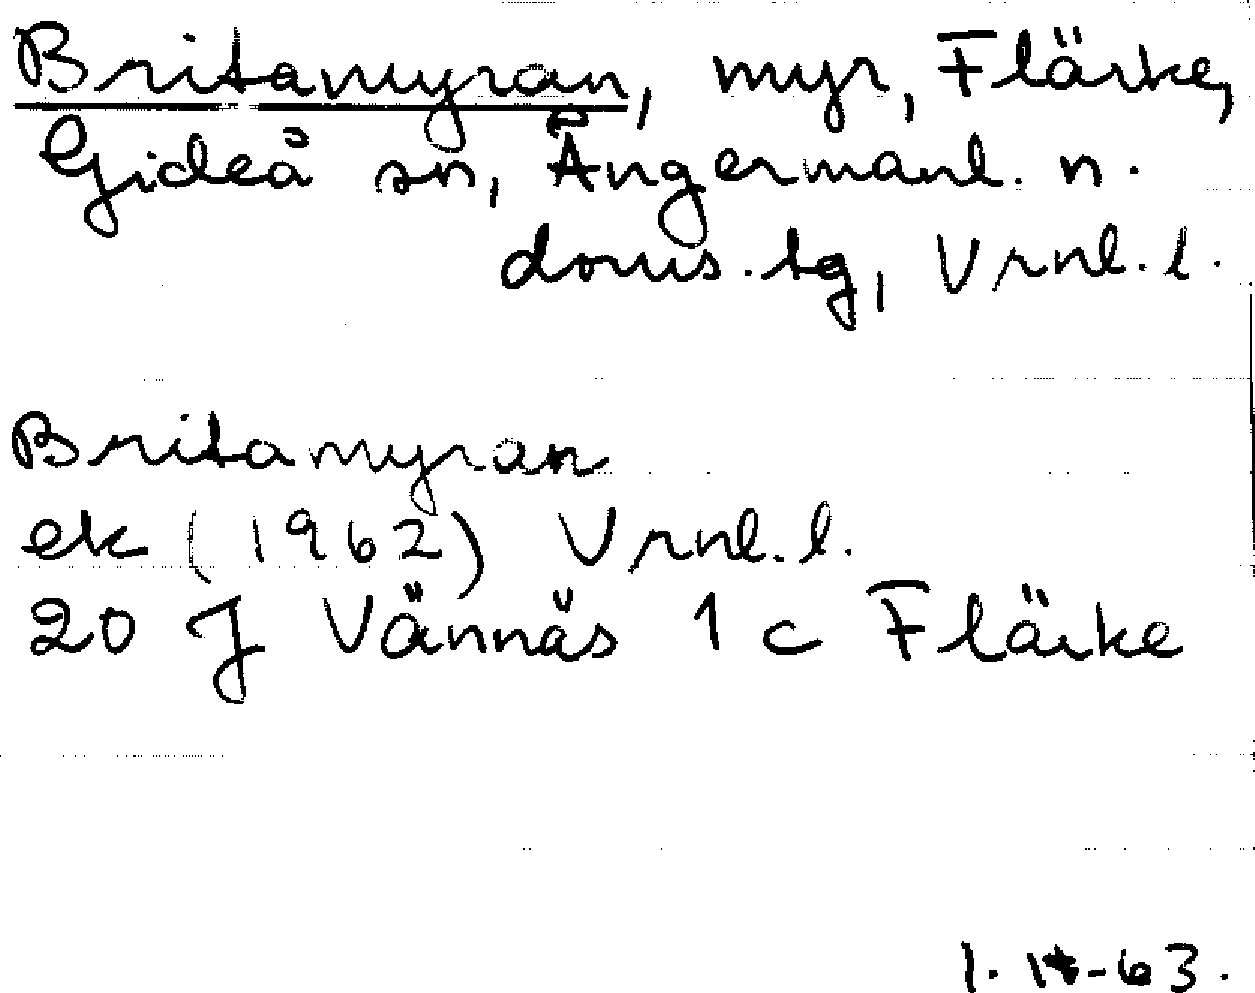 Britamyran, myr, Flärke,
Gideå sn, Ångermanl. n.
doms.tg, Vrnl. l.
Britamyran
ek (1962) Vrnl. l.
20 J Vännäs 1 c Flärke
1.
-63.